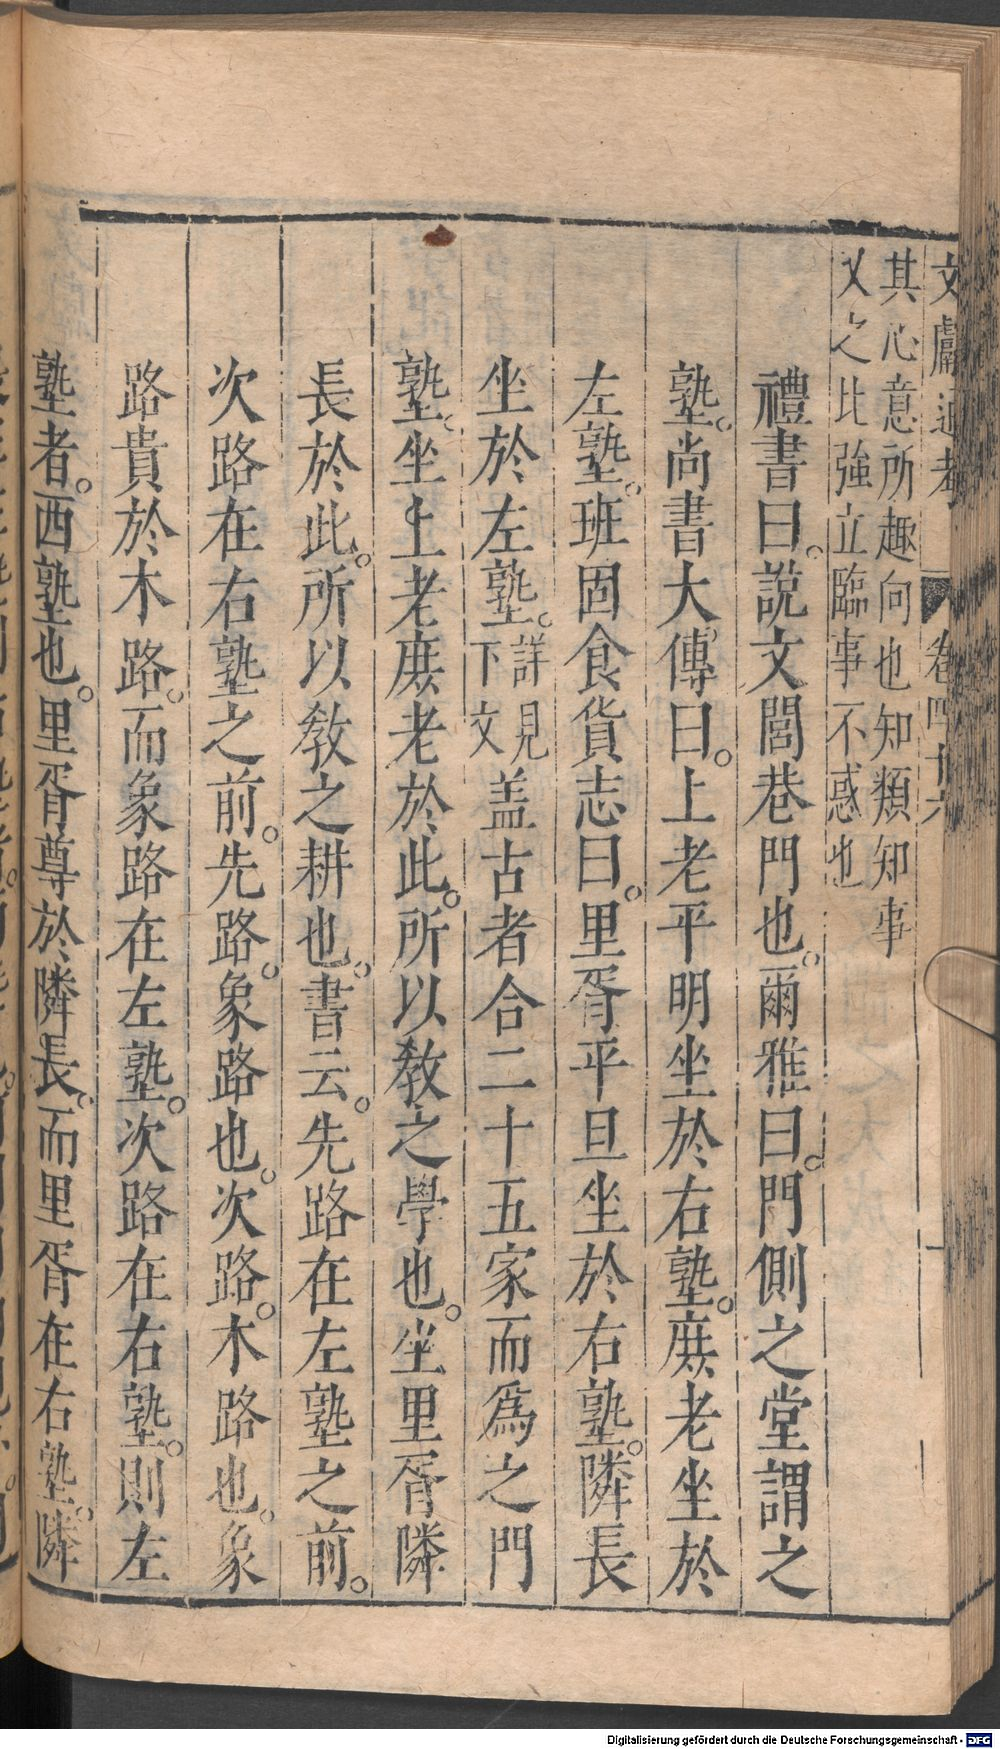 文獻通考 卷四十六
其心意所趣向也知類知事
义之比強立臨事不惑也
禮書曰。說文閭巷門也。爾雅曰。門側之堂謂之
塾。尚書大傳曰。上老平明坐於右塾。庶老坐於
左塾。班固食貨志曰。里胥平旦坐於右塾。隣長
坐於左塾。詳見下文盖古者合二十五家而爲之門
塾。坐上老庶老於此。所以教之學也。坐里胥隣
長於此。所以教之耕也。書云。先路在左塾之前。
次路在右塾之前。先路。象路也。次路。木路也。象
路貴於木路。而象路在左塾。次路在右塾。則左
塾者。西塾也。里胥尊於隣長。而里胥在右塾。隣
Digitalisierung gefördert durch die Deutsche Forschungsgemeinschaft - DFG